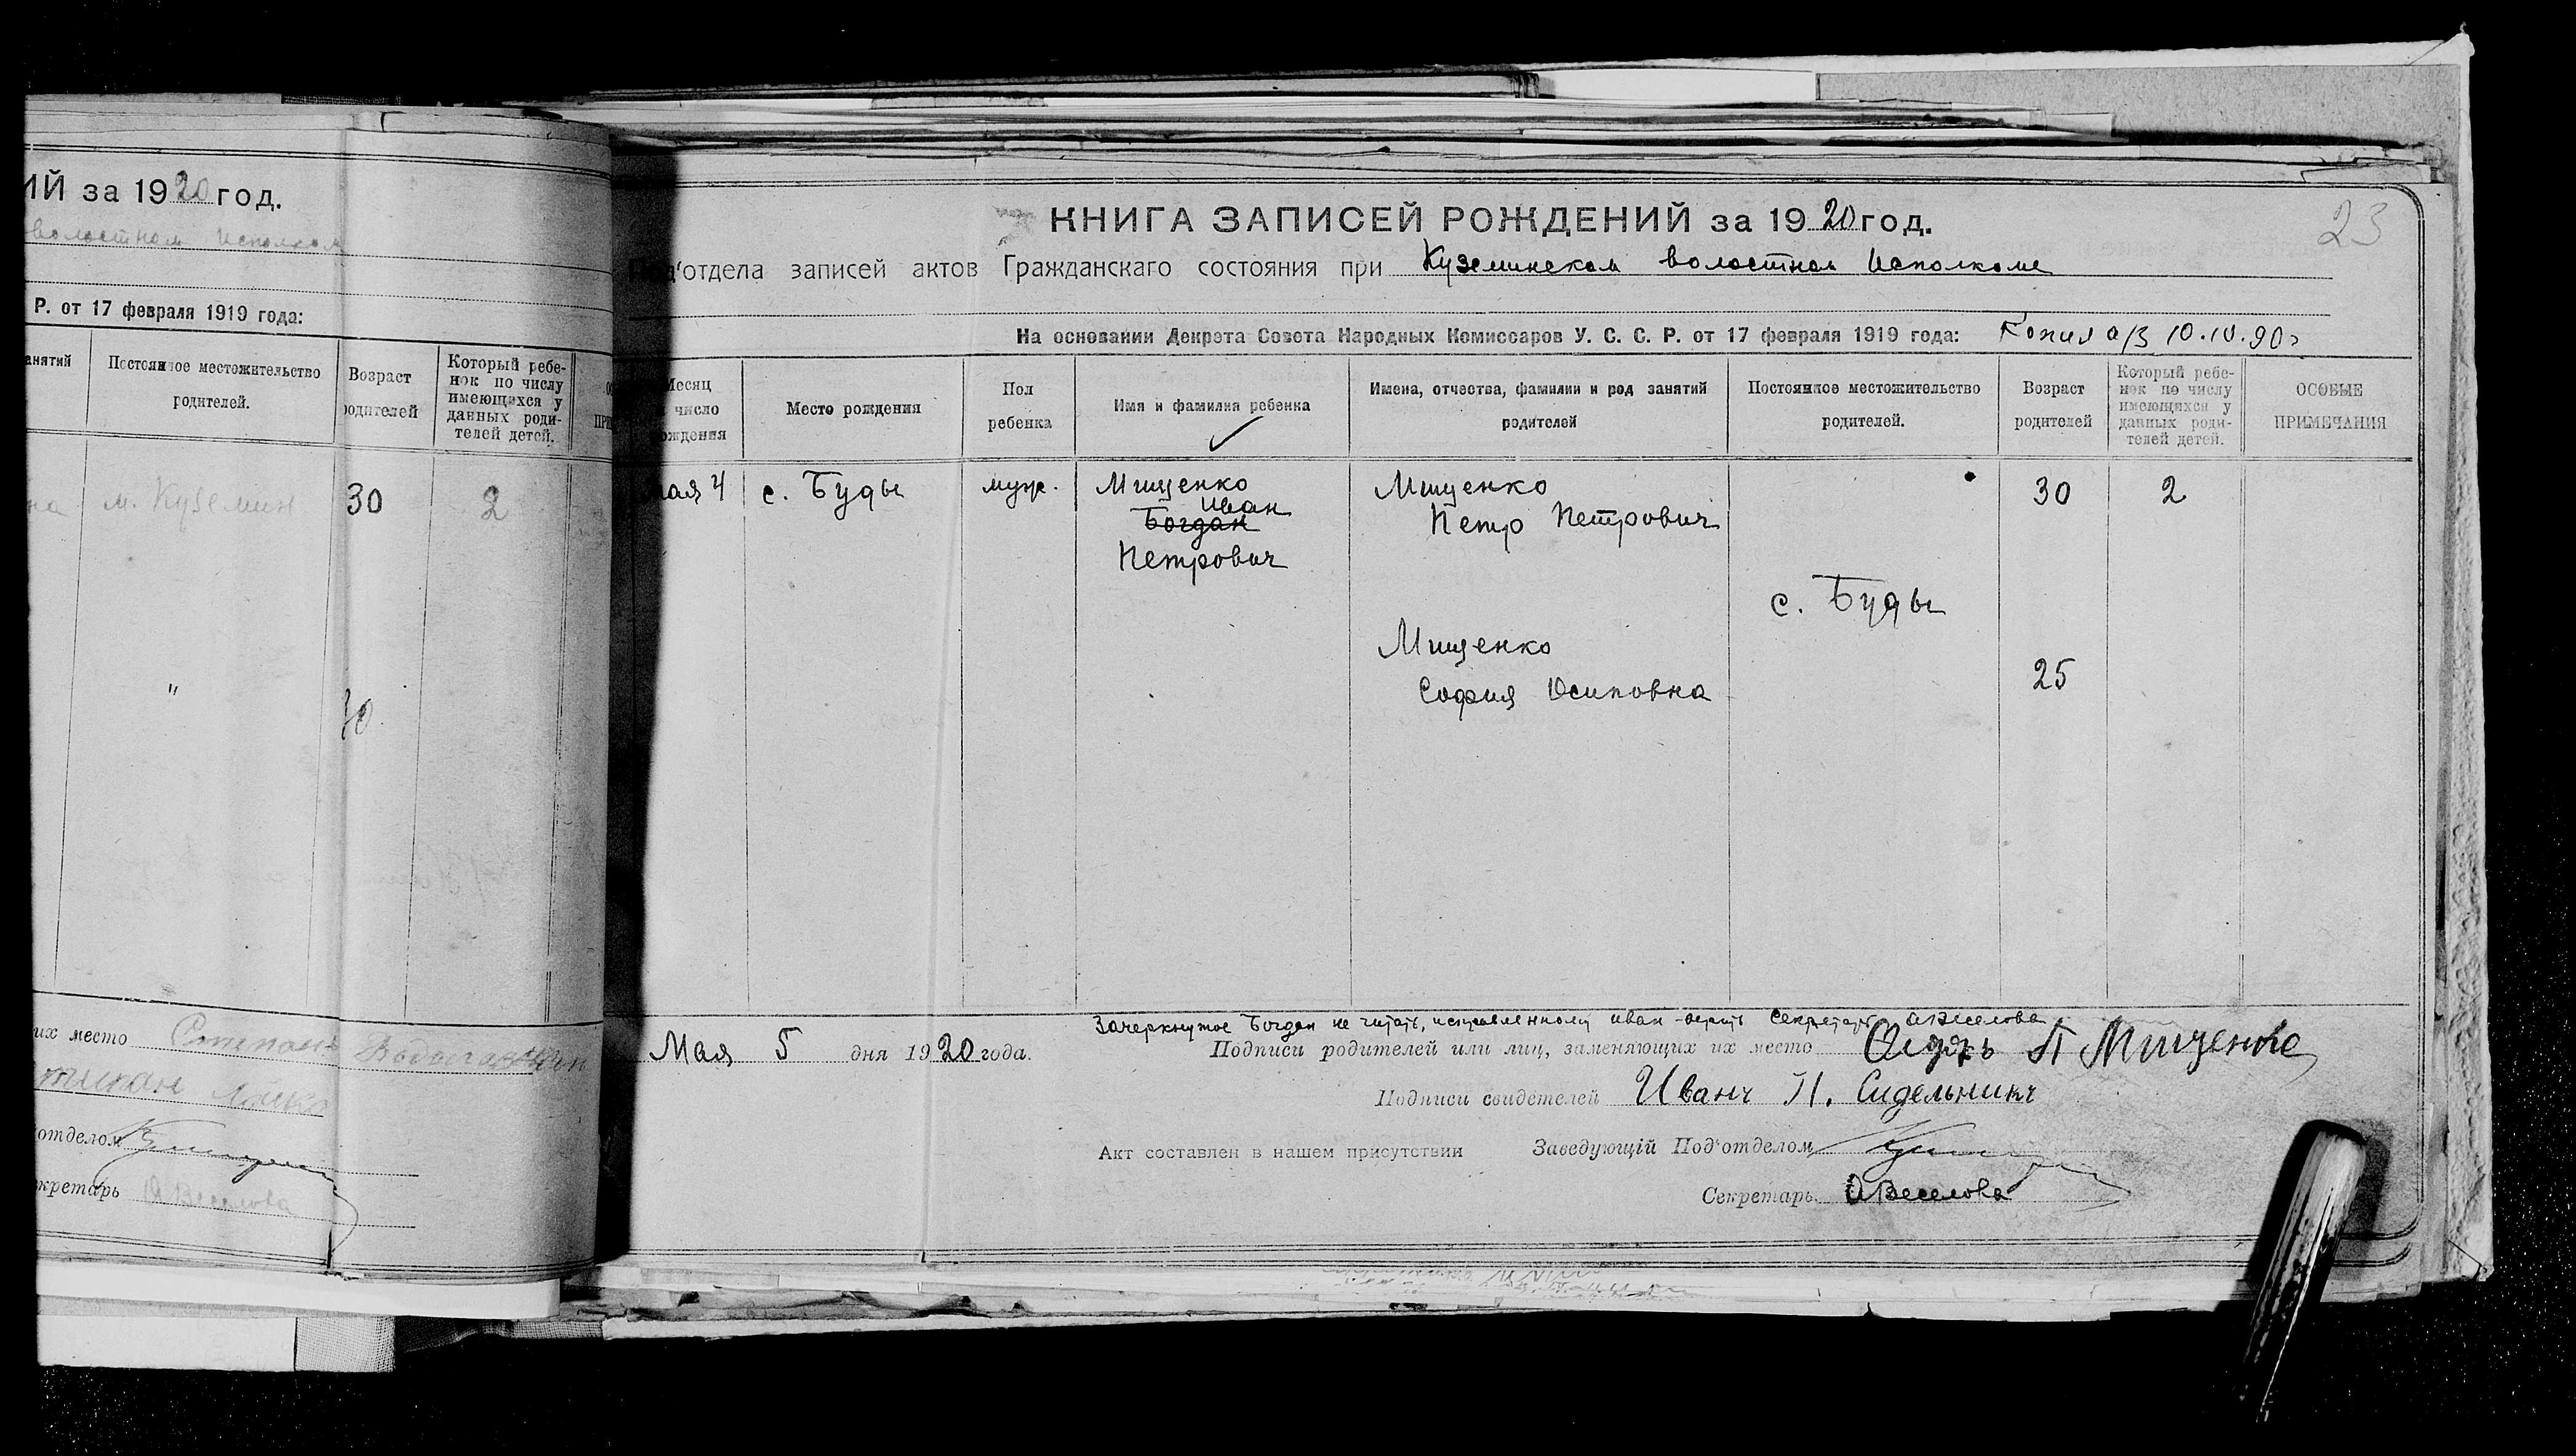 ИЙ за 1920 год.
волостном Исполком
Р. от 17 февраля 1919 года:
анятий
Постоянное местожительство
родителей.
Возраст
родителей
Который ребе-
нок по числу
имеющихся у
данных роди-
телей детей.
на
м. Куземин
30
2
"
их место Степан
отделом
кретарь ОВеселова
КНИГА ЗАПИСЕЙ РОЖДЕНИЙ за 1920 год.
23
Под'отдела записей актов Гражданскаго состояния при Куземинском волостном Исполкоме
На основании Декрета Совета Народных Комиссаров У. С. С. Р. от 17 февраля 1919 года:
10.10.90г
Месяц
число
рождения
Место рождения
Пол
ребенка
Имя и фамилия ребенка
Имена, отчества, фамилии и род занятий
родителей
Постоянное местожительство
родителей.
Возраст
родителей
Который ребе-
нок по числу
имеющихся у
данных роди-
телей детей.
ОСОБЫЕ
ПРИМЕЧАНИЯ
мая 4
с. Буды
муж.
Мищенко
Иван
Богдан
Петрович
Мищенко
Петр Петрович
с. Буды
Мищенко
София Осиповна
30
25
2
Зачеркнутое Богдан не читать, исправленному Иван верить Секретарь ОВеселова
Мая 5 дня 1920 года.
Подписи родителей или лиц, заменяющих их место П Мищенко
Подписи свидетелей Иванъ П. Сидельникъ
Акт составлен в нашем присутствии
Заведующій Под'отделом
Секретарь ОВеселова